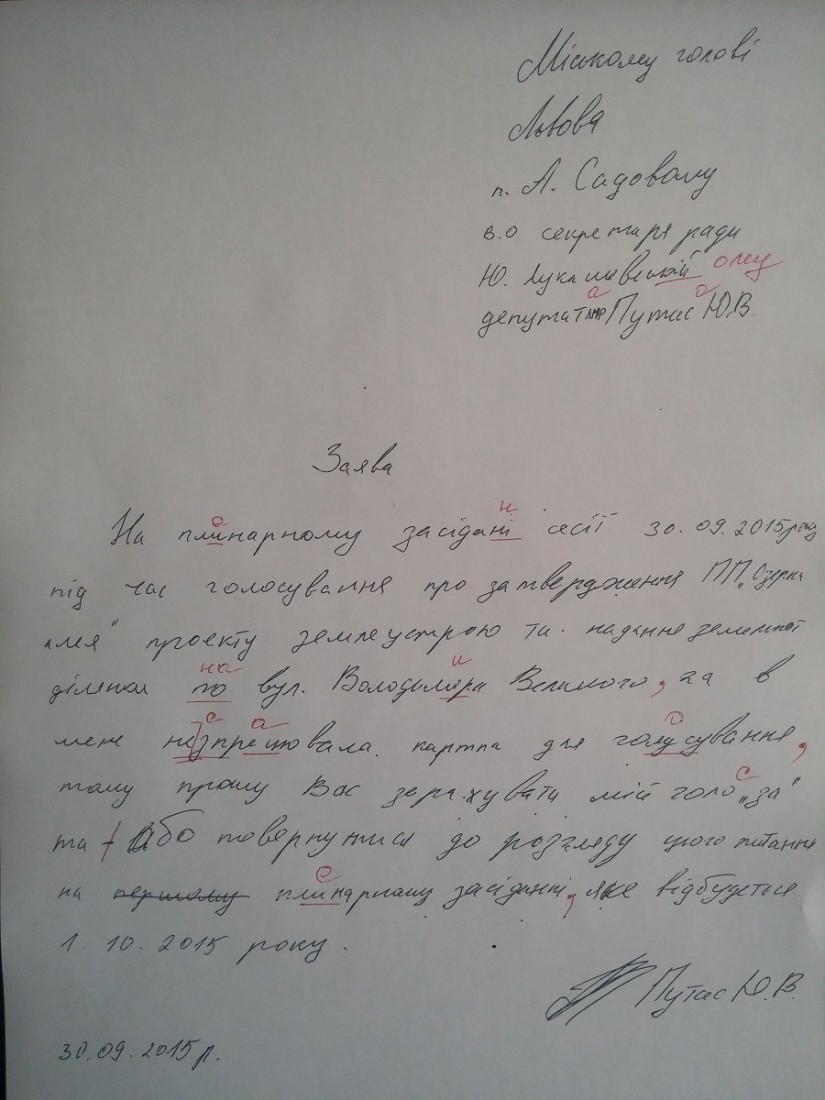 Міському голові
Львова
п. А. Садовому
в.о секретаря ради
Ю. Лукашевській ому
а а
депутат ЛМР Путас Ю.В.
Заява
е н
На плинарному засідані сесії 30.09.2015 року
під час голосування про затвердження ПП „Озерна
алея" проекту землеустрою та надання земельної
на и
ділянки по вул. Володимера Великого, та в
с а о
мене незпрецювала картка для голусування,
с
тому прошу Вас зарахувати мій голо „за"
та / або повернутися до розгляду цього питання
е
на першому плинарному засіданні, яке відбудеться
1. 10. 2015 року.
Путас Ю.В.
30.09.2015 р.